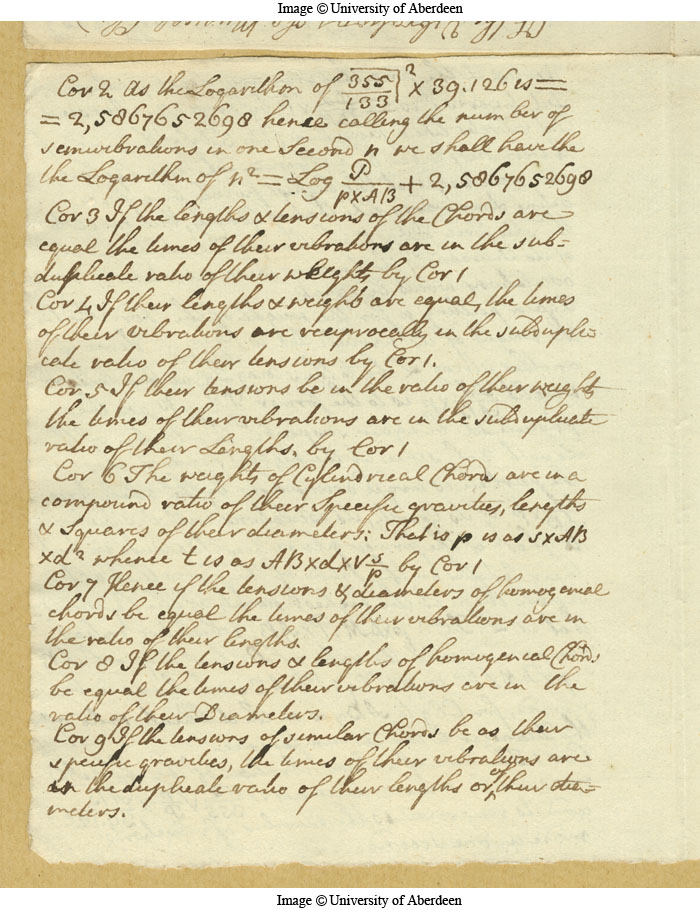 Image © University of Aberdeen
Cor 2 As the Logarithm of 355/133|² × 39.126 is =
= 2,5867652698 hence calling the number of
semivibrations in one Second n we shall have the
the Logarithm of n² = Log P/p×AB + 2,5867652698
Cor 3 If the lengths & tensions of the Chords are
equal the times of their vibrations are in the sub=
duplicate ratio of their weights by Cor 1
Cor 4 If their lengths & weights are equal, the times
of their vibrations are reciprocally in the subdupli-
cate ratio of their tensions by Cor 1.
Cor. 5 If their tensions be in the ratio of their weights
the times of their vibrations are in the subduplicate
ratio of their Lengths. by Cor 1
Cor 6 The weights of Cylindrical Chords are in a
compound ratio of their Specific gravities, lengths
& Squares of their diameters: That is p is as s×AB
×d² whence t is as AB×d×√s/p by Cor 1
Cor 7 Hence if the tensions & diameters of homogenial
chords be equal the times of their vibrations are in
the ratio of their lengths.
Cor 8 If the tensions & lengths of homogenial Chords
be equal the times of their vibrations are in the
ratio of their Diameters.
Cor 9 If the tensions of similar Chords be as their
specific gravities, the times of their vibrations are
in the duplicate ratio of their lengths or of their dia=
meters.
Image © University of Aberdeen